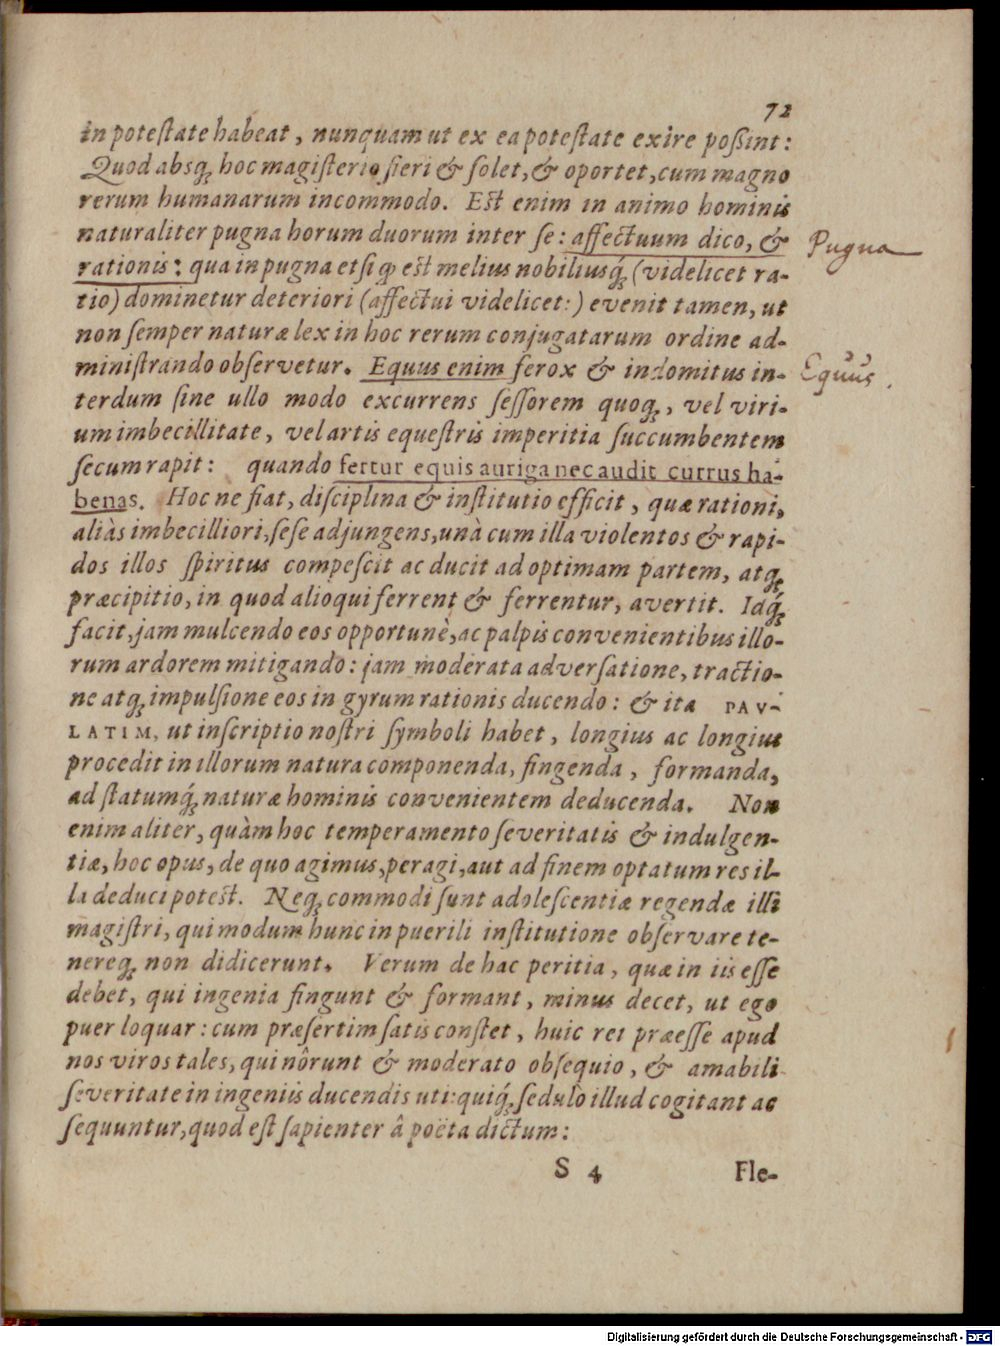 72
in poteſtate habeat, nunquam ut ex ea poteſtate exire poſsint:
Quod absq; hoc magiſterio fieri & ſolet, & oportet, cum magno
rerum humanarum incommodo. Eſt enim in animo hominis
naturaliter pugna horum duorum inter ſe: affectuum dico, &
Pugna
rationis: qua in pugna etſi qđ eſt melius nobiliusq́; (videlicet ra-
tio) dominetur deteriori (affectui videlicet:) evenit tamen, ut
non ſemper naturæ lex in hoc rerum conjugatarum ordine ad-
miniſtrando obſervetur. Equus enim ferox & indomitus in-
Equus
terdum ſine ullo modo excurrens ſeſſorem quoq;, vel viri-
um imbecillitate, vel artis equeſtris imperitia ſuccumbentem
ſecum rapit: quando fertur equis auriga nec audit currus ha-
benas. Hoc ne fiat, diſciplina & inſtitutio efficit, quæ rationi,
aliàs imbecilliori, ſeſe adjungens, unà cum illa violentos & rapi-
dos illos ſpiritus compeſcit ac ducit ad optimam partem, atq;
præcipitio, in quod alioqui ferrent & ferrentur, avertit. Idq́;
facit, jam mulcendo eos opportunè, ac palpis convenientibus illo-
rum ardorem mitigando: jam moderata adverſatione, tractio-
ne atq; impulſione eos in gyrum rationis ducendo: & ita PAV-
LATIM, ut inſcriptio noſtri ſymboli habet, longius ac longius
procedit in illorum natura componenda, fingenda, formanda,
ad ſtatumq́; naturæ hominis convenientem deducenda. Non
enim aliter, quàm hoc temperamento ſeveritatis & indulgen-
tiæ, hoc opus, de quo agimus, peragi, aut ad finem optatum res il-
la deduci poteſt. Neq; commodi ſunt adoleſcentiæ regendæ illi
magiſtri, qui modum hunc in puerili inſtitutione obſervare te-
nereq; non didicerunt. Verum de hac peritia, quæ in iis eſſe
debet, qui ingenia fingunt & formant, minus decet, ut ego
puer loquar: cum præſertim ſatis conſtet, huic rei præeſſe apud
nos viros tales, qui nôrunt & moderato obſequio, & amabili
ſeveritate in ingeniis ducendis uti: quiq́; ſedulò illud cogitant ac
ſequuntur, quod eſt ſapienter â poëta dictum:
S 4 Fle-
Digitalisierung gefördert durch die Deutsche Forschungsgemeinschaft - DFG